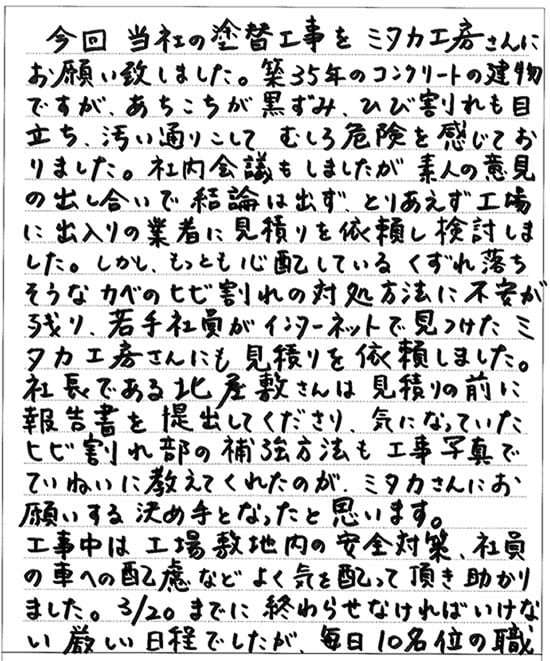 今回 当社の塗替工事をミタカ工房さんに
お願い致しました。築35年のコンクリートの建物
ですが、あちこちが黒ずみ、ひび割れも目
立ち、汚い通りこして むしろ危険を感じてお
りました。社内会議もしましたが素人の意見
の出し合いで結論は出ず、とりあえず工場
に出入りの業者に見積りを依頼し検討しま
した。しかし、もっとも心配しているくずれ落ち
そうなカベのヒビ割れの対処方法に不安が
残り、若手社員がインターネットで見つけたミ
タカ工房さんにも見積りを依頼しました。
社長である北屋敷さんは見積りの前に
報告書を提出してくださり、気になっていた
ヒビ割れ部の補強方法も工事写真で
ていねいに教えてくれたのが、ミタカさんにお
願いする決め手となったと思います。
工事中は工場敷地内の安全対策、社員
の車への配慮などよく気を配って頂き助かり
ました。3/20までに終わらせなければいけな
い厳しい日程でしたが、毎日10名位の職